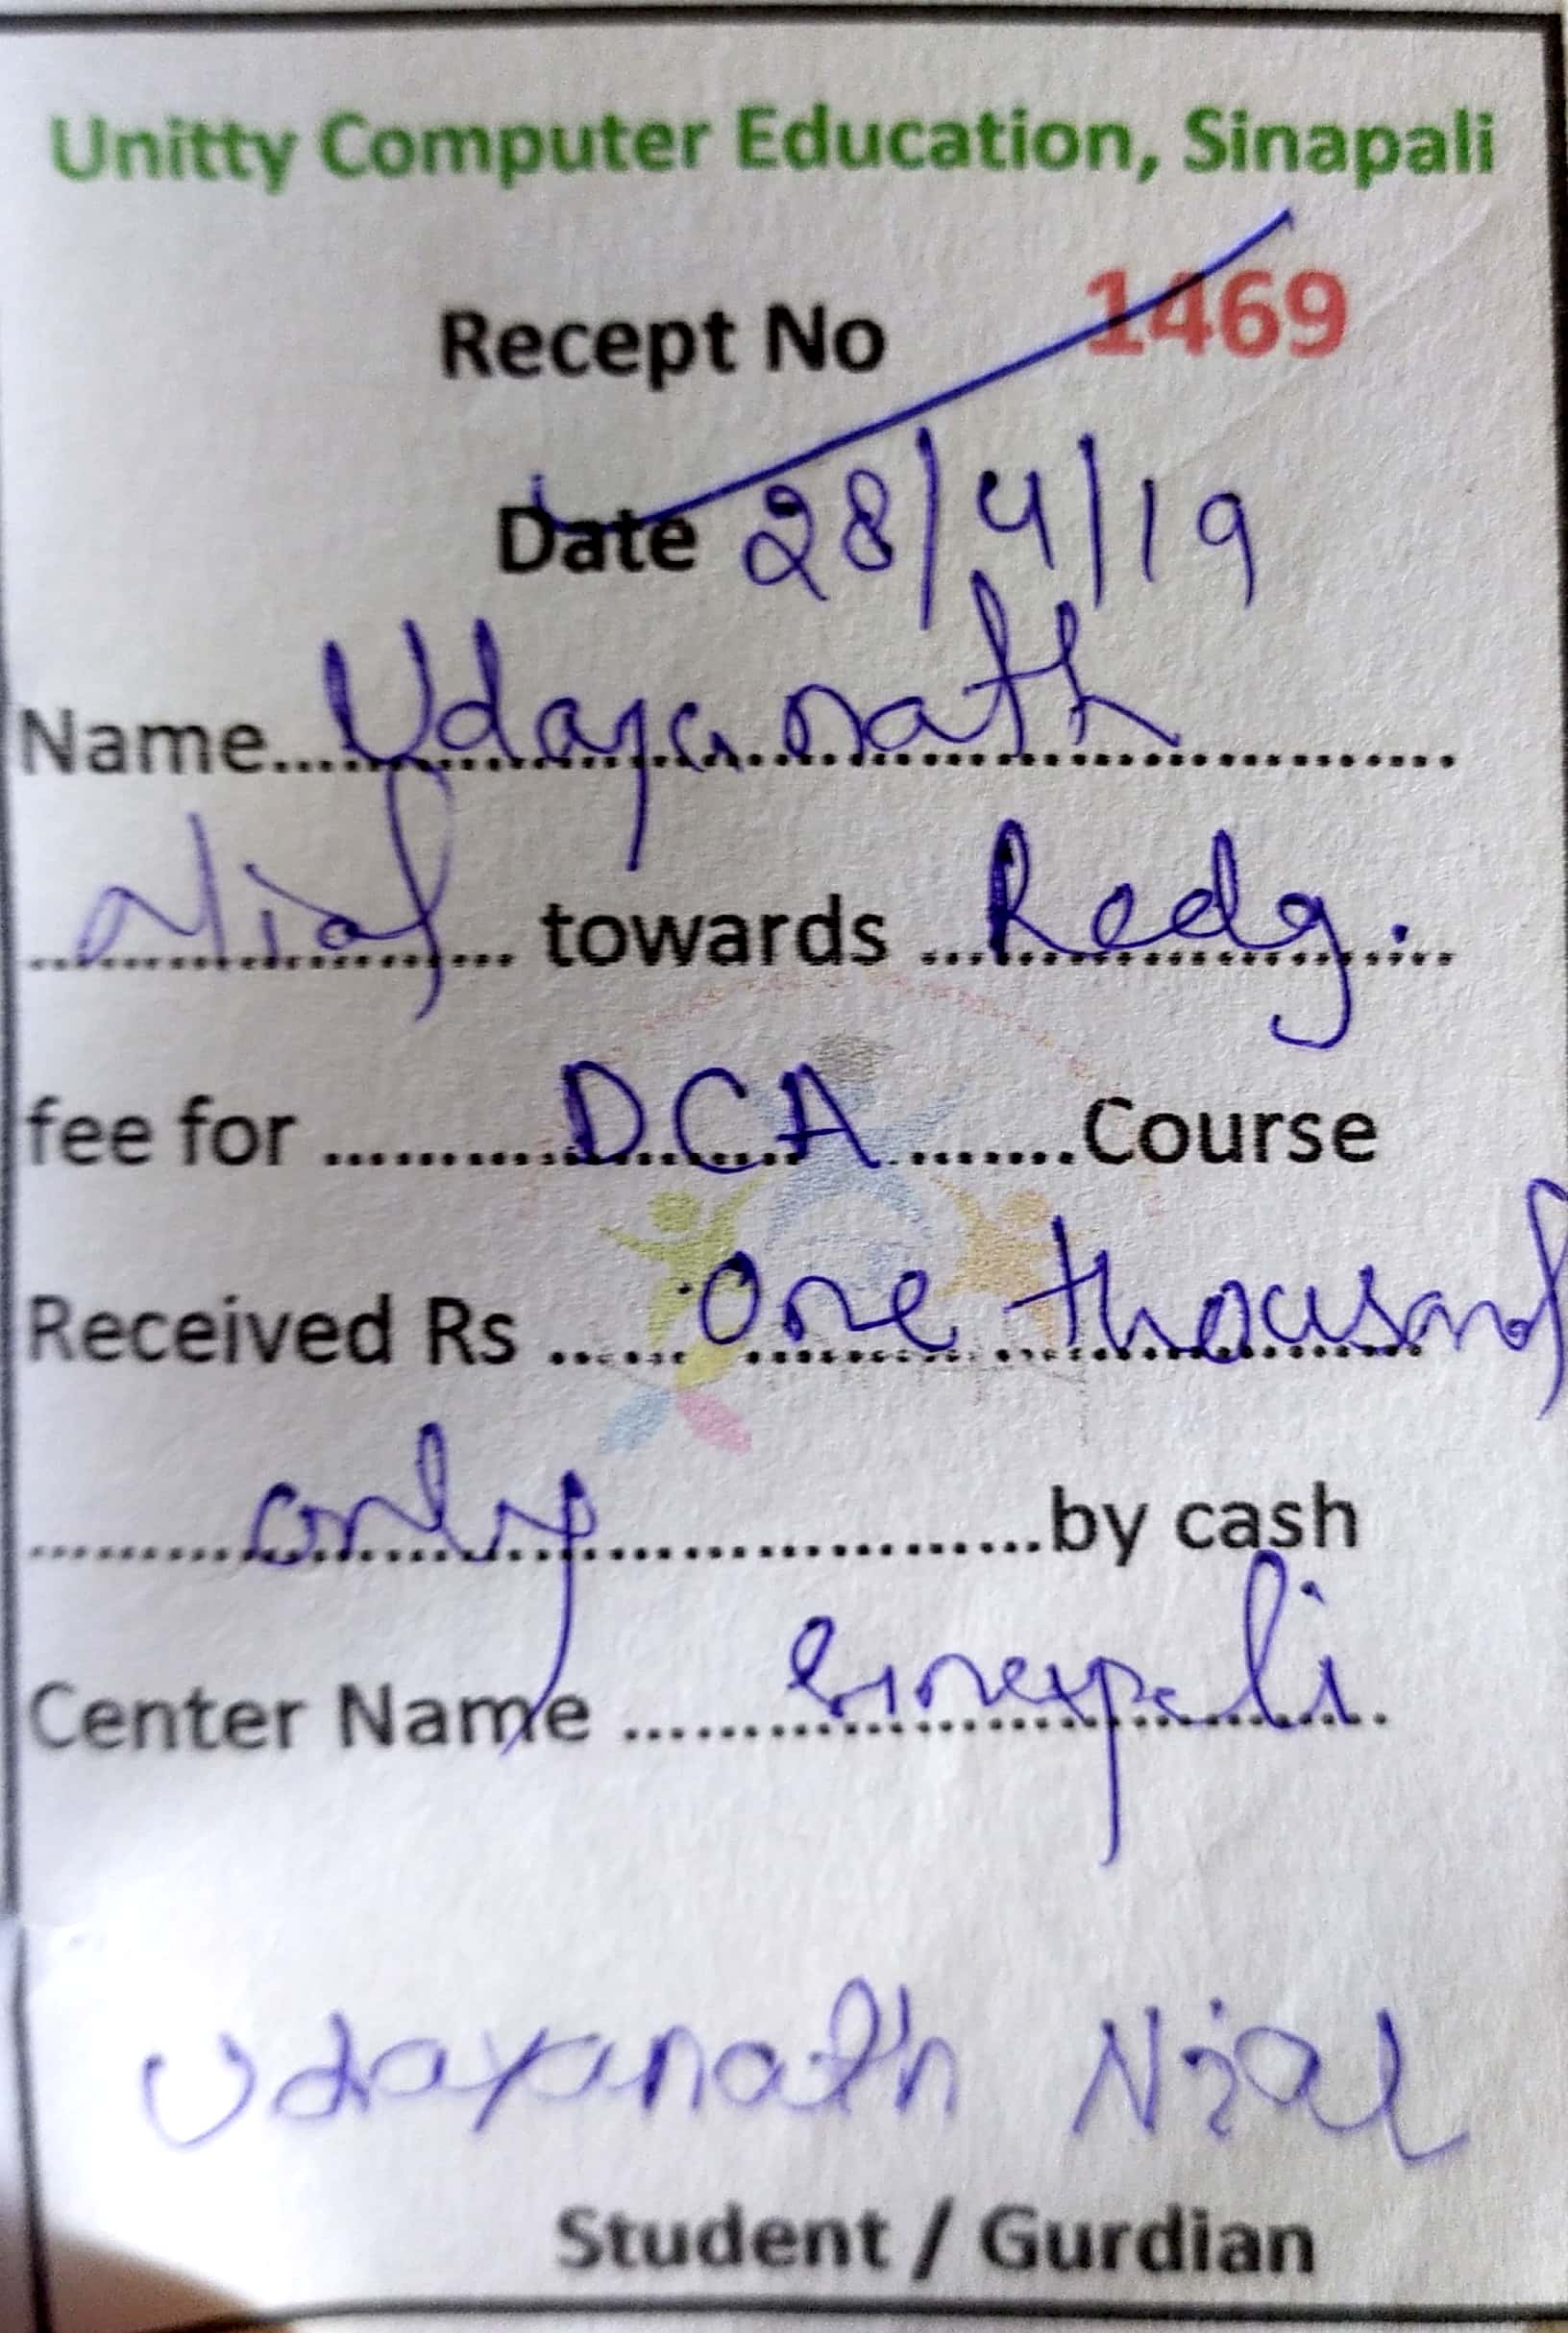 Unitty Computer Education, Sinapali
Recept No 1469
Date 28/4/19
Name.....Udayanath.....
.....Nial..... towards .....Redg.....
fee for .....DCA.....Course
Received Rs .....One thousand.....
.....only.....by cash
Center Name .....Sinapali.....
Udayanath Nial
Student / Gurdian